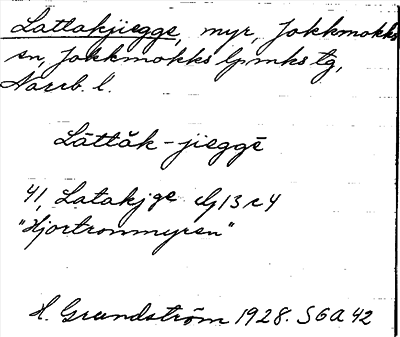 Lattakjiegge, myr, Jokkmokks
sn, Jokkmokks lpmks tg,
Norrb. l.
Láttǎk-jieggē
41, Latakjge
"Hjortronmyren"
H. Grundström 1928. SGA 42